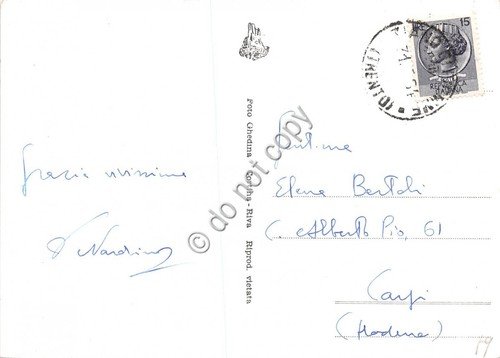 Grazie vivissime
Nardino
Foto Ghedina Cortina - Riva Riprod. vietata
do not copy
15
(TRENTO)
Gent.ma
Elena Bertoli
C. Alberto Pio, 61
Carpi
(Modena)
59